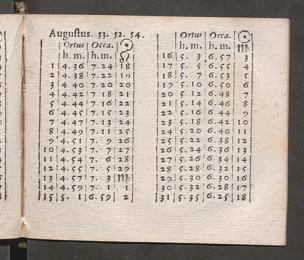 Augustus. 53. 52. 54.
Ortus Occa. ☉
h. m. h. m. ♌
1 4.36 7.24 18
2 4.38 7.22 19
3 4.40 7.20 20
4 4.42 7.18 21
5 4.44 7.16 22
6 4.45 7.15 23
7 4.47 7.13 24
8 4.49 7.11 25
9 4.51 7. 9 26
10 4.53 7. 7 27
11 4.54 7. 6 28
12 4.55 7. 5 29
13 4.57 7. 3 ♍
14 4.59 7. 1 1
15 5. 1 6.59 2
Ortus Occa. ☉
h. m. h. m. ♍
16 5. 3 6.57 3
17 5. 5 6.55 4
18 5. 7 6.53 5
19 5.10 6.50 6
20 5.12 6.48 7
21 5.14 6.46 8
22 5.16 6.44 9
23 5.18 6.42 10
24 5.20 6.40 11
25 5.22 6.38 12
26 5.24 6.36 13
27 5.26 6.34 14
28 5.28 6.32 15
29 5.30 6.30 16
30 5.32 6.28 17
31 5.35 6.25 18